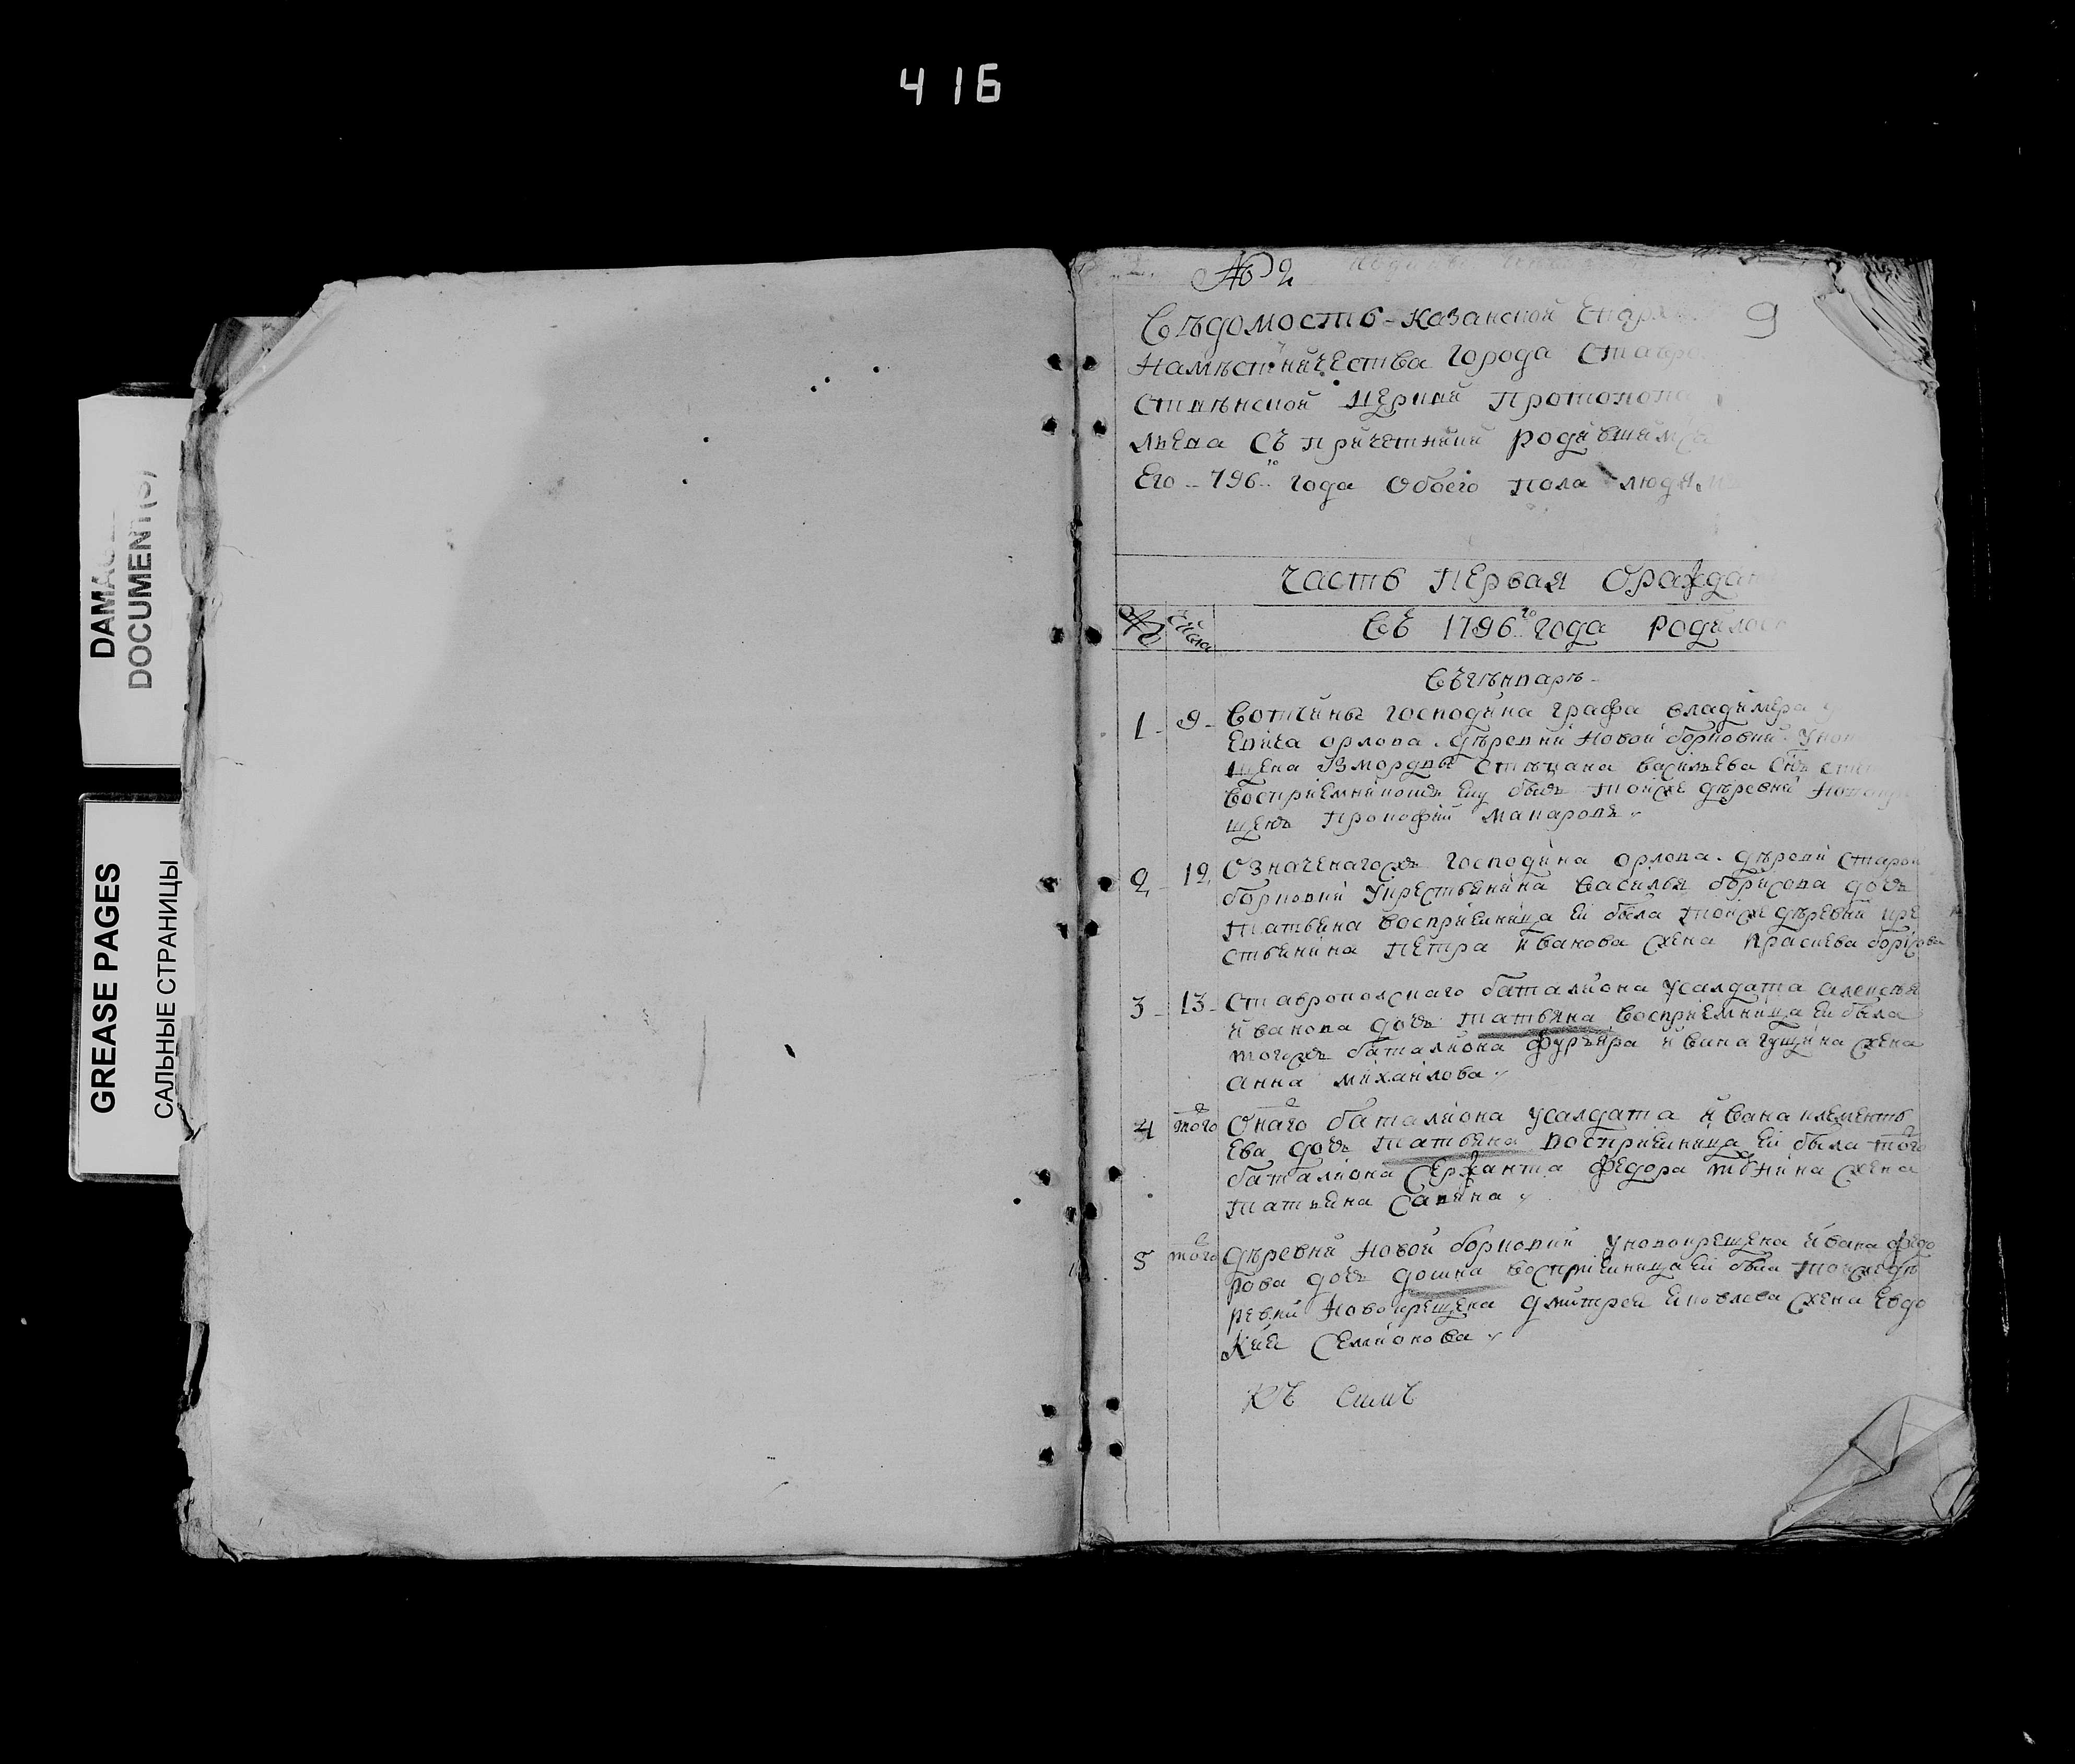 416
DAMAGED
DOCUMENT(S)
GREASE PAGES
САЛЬНЫЕ СТРАНИЦЫ
№ 2
9
Вѣдомость Казанской Епарх
Намѣстничества города Ставро
льева съ причетники родившимся
Его 796го года обоего пола людям
Часть Первая О рожда
№ Числа
Въ 1796го году родилось
Въ генварѣ
1 9 Вотчины господина графа владимера
евича орлова деревни новой борковки у ново
щена из мордвы степана васильева снъ
восприемникомъ ему былъ тойже деревни новокре
щенъ прокофий макаровъ
2 12 Означенагожъ господина орлова деревни старой
борковки у крестьянина василья борисова дочь
татьяна восприемница ей была тойже деревни кре
стьянина петра иванова жена прасковья борисова
3 13 Ставропольскаго баталиона у салдата алексея
иванова дочь татьяна восприемница ей была
тогожъ баталиона фурьира ивана гущина жена
анна михайлова
4 того Онаго баталиона у салдата ивана клементь
ева дочь татьяна восприемница ей была того
баталиона сержанта федора жена
татьяна савина
5 того деревни новой борковки у новокрещена ивана федо
рова дочь домна восприемница ей была тойже де
ревни новокрещена дмитрея яковлева жена евдо
кия семионова
Къ симъ